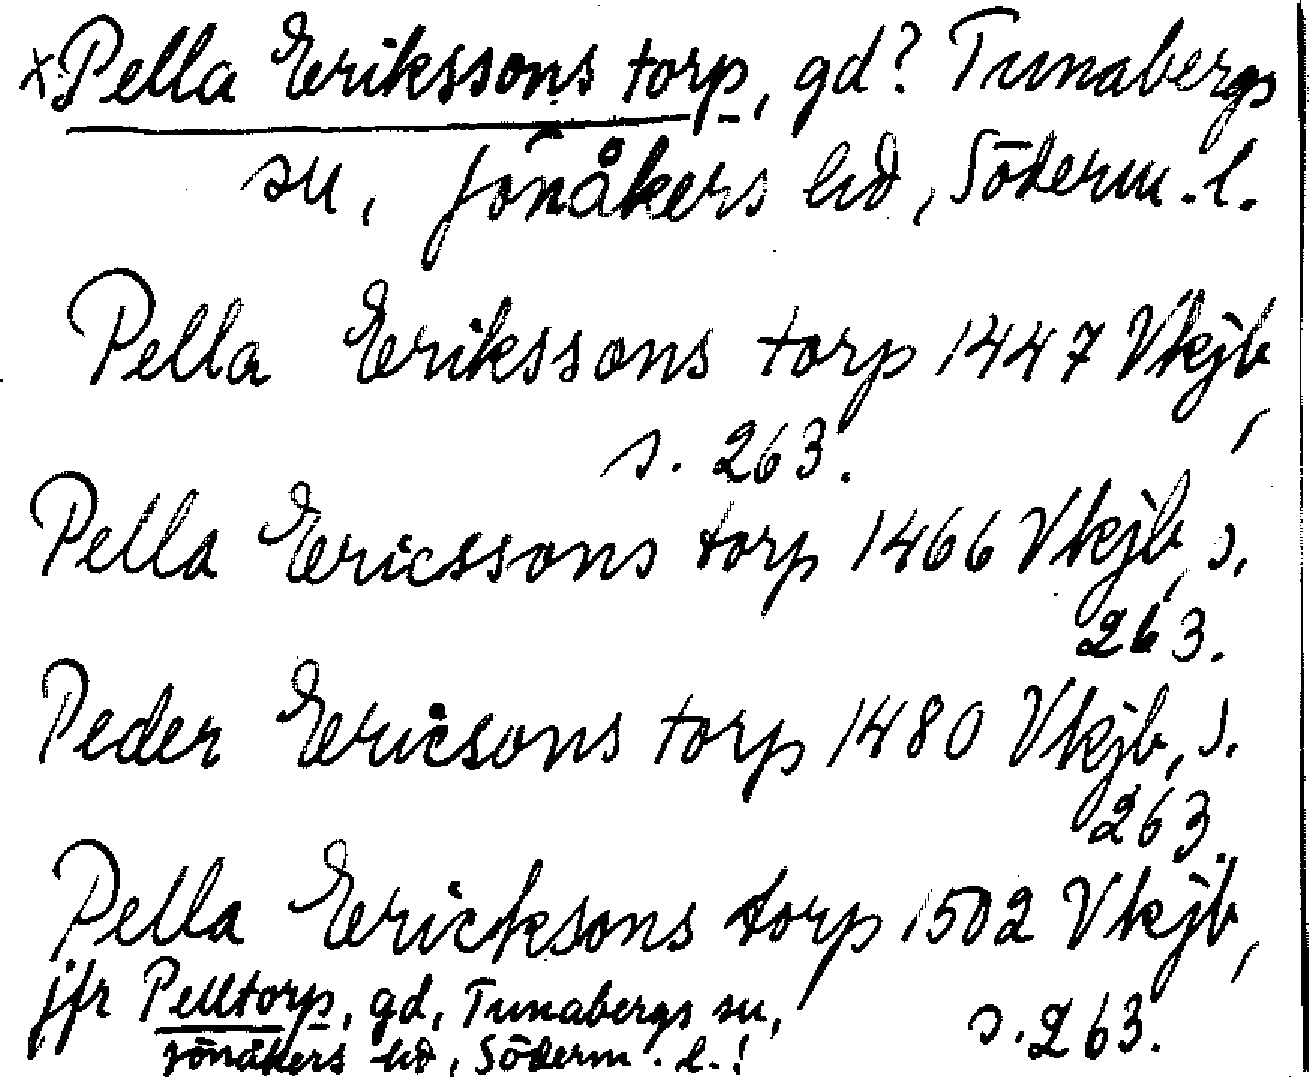 x Pella Erikssons torp, gd? Tunabergs
su, Jönåkers hd, Söderm. l.
Pella Erikssons torp 1447 Vkjb,
s. 263.
Pella Ericssons torp 1466 Vkjb, s.
263.
Peder Ericsons torp 1480 Vkjb, s.
263.
Pella Ericksons torp 1502 Vkjb,
s. 263.
jfr Pelltorp, gd, Tunabergs su,
Jönåkers hd, Söderm. l.!